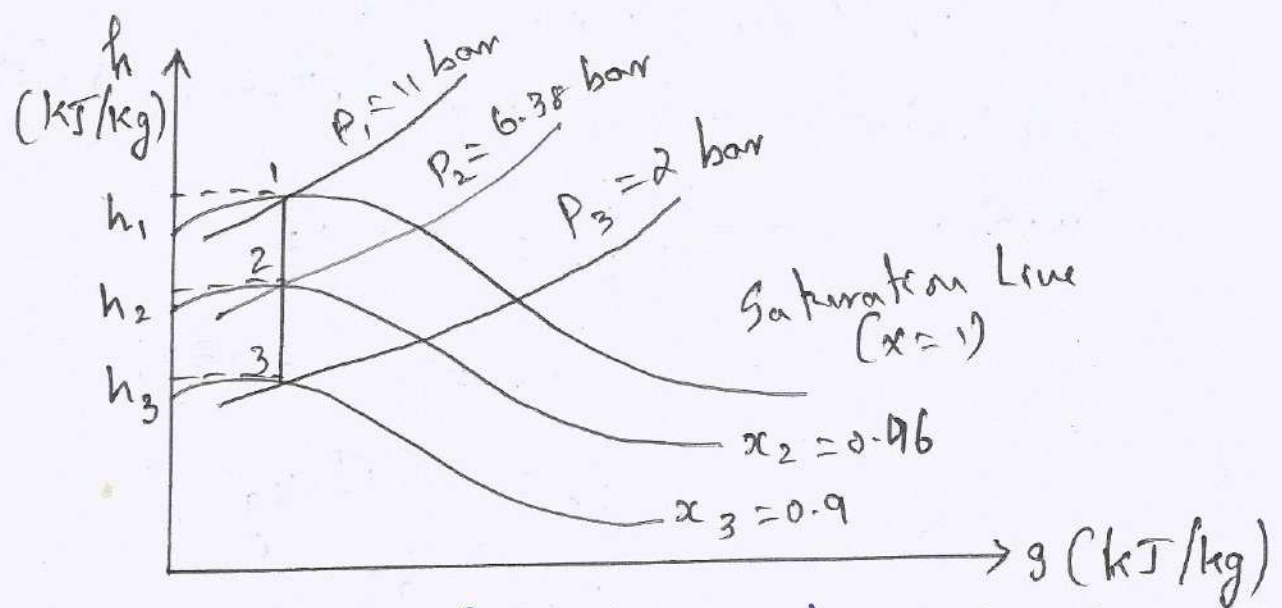 h
(kJ/kg)
P₁ = 11 bar
P₂ = 6.38 bar
P₃ = 2 bar
1
h₁
2
h₂
3
h₃
Saturation Line
(x = 1)
x₂ = 0.96
x₃ = 0.9
s (kJ/kg)